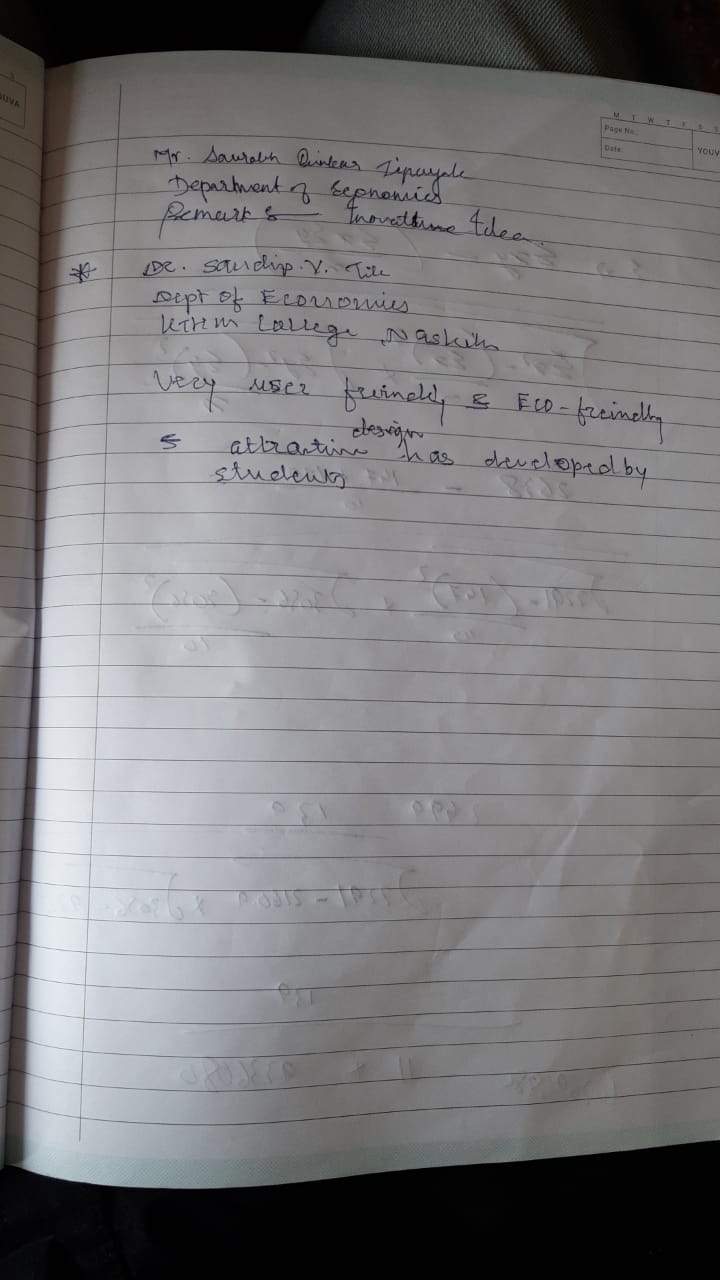 YOUVA
M T W T F S S
Page No.:
Date:
YOUV
Mr. Saurabh Dinkar
Department of Economics
Remarks — Inovattive Idea.
* Dr. Sandip. V.
Dept of Economics
KTHM College, Nashik
Very user freindly & ECO-freindly
& attractive design has developed by
students